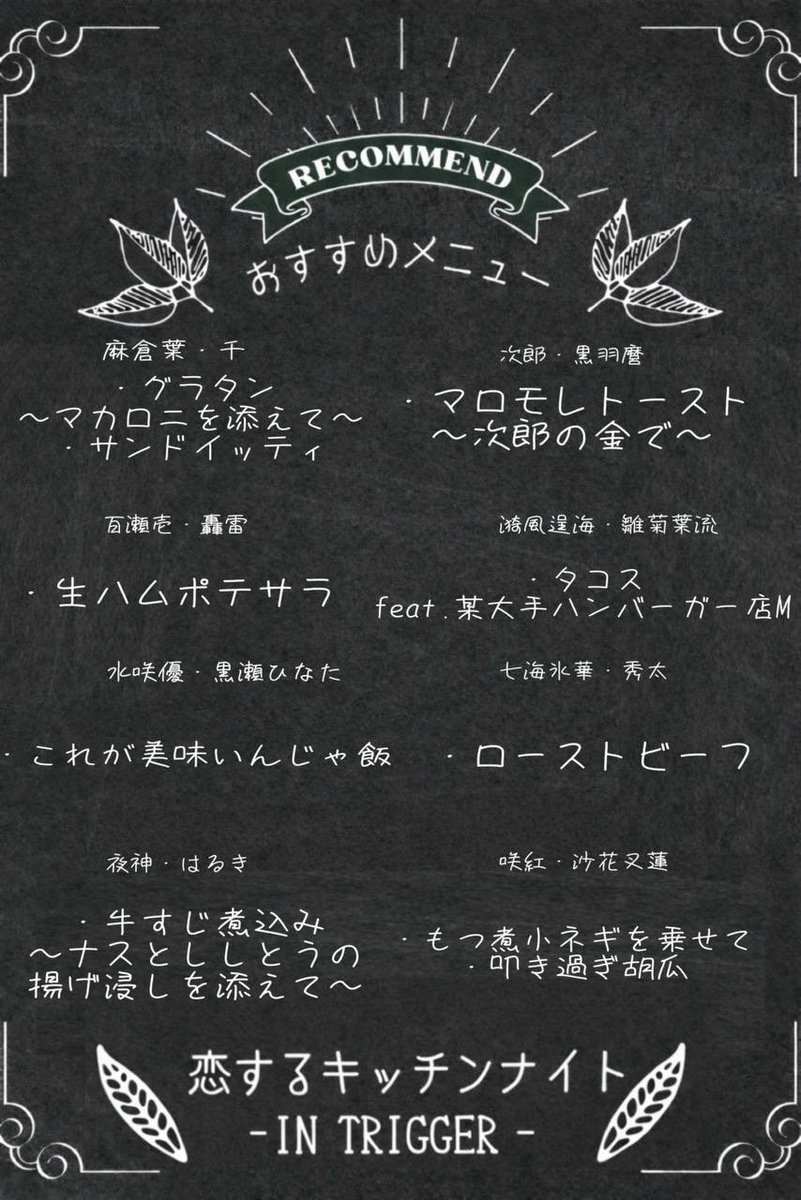 RECOMMEND
おすすめメニュー
麻倉葉・千
・グラタン
〜マカロニを添えて〜
・サンドイッティ
次郎・黒羽麿
・マロモレトースト
〜次郎の金で〜
百瀬壱・轟雷
・生ハムポテサラ
漪風逞海・雛菊葉流
・タコス
feat.某大手ハンバーガー店M
水咲優・黒瀬ひなた
・これが美味いんじゃ飯
七海氷華・秀太
・ローストビーフ
夜神・はるき
・牛すじ煮込み
〜ナスとししとうの
揚げ浸しを添えて〜
咲紅・沙花叉蓮
・もつ煮小ネギを乗せて
・叩き過ぎ胡瓜
恋するキッチンナイト
-IN TRIGGER-